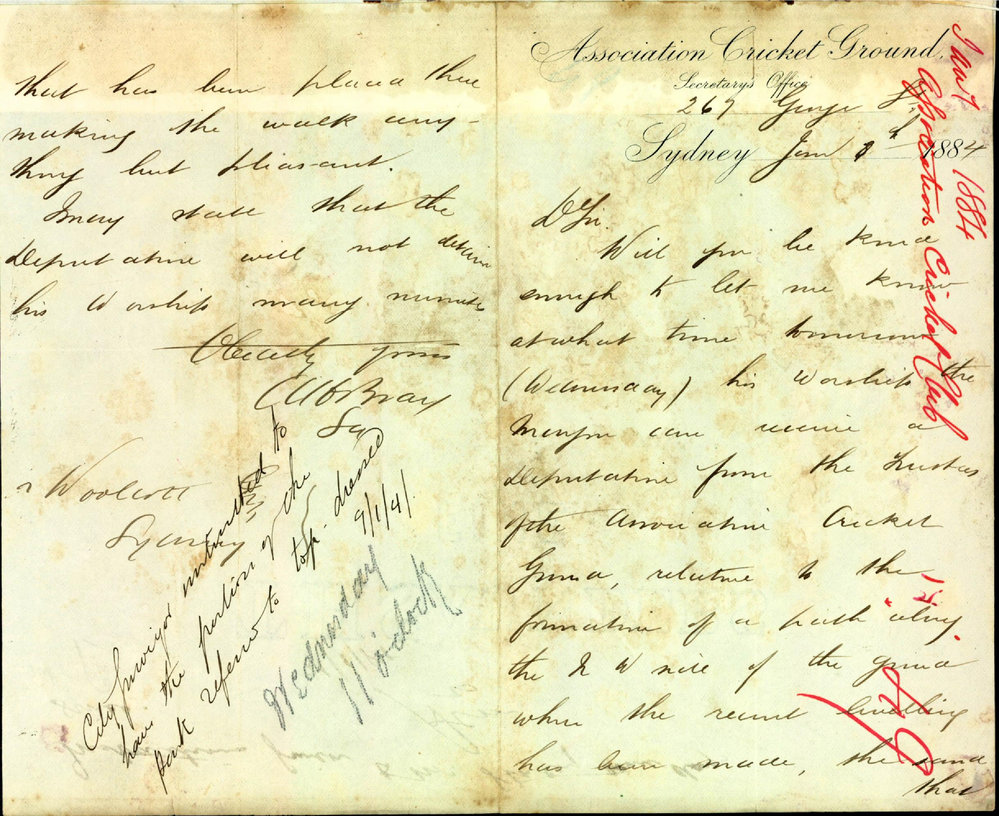 Association Cricket Ground,
Secretary's Office
267 George St
Sydney Jan 8th 1884
D Sir.
Will you be kind
enough to let me know
at what time tomorrow
(Wednesday) his Worship the
Mayor can receive a
Deputation from the Trustees
of the Association Cricket
Ground, relative to the
formation of a path along
the N W side of the ground
where the recent levelling
has been made, the sand
that
that has been placed there
making the walk any-
thing but pleasant.
I may state that the
Deputation will not detain
his Worship many minutes
Obedtly yours
Bray
Sec
Woolcott
Sydney
City Surveyor instructed to
have the portion of the
park referred to top dressed
Wednesday
11 o'clock
Jany 1884
Association Cricket Club